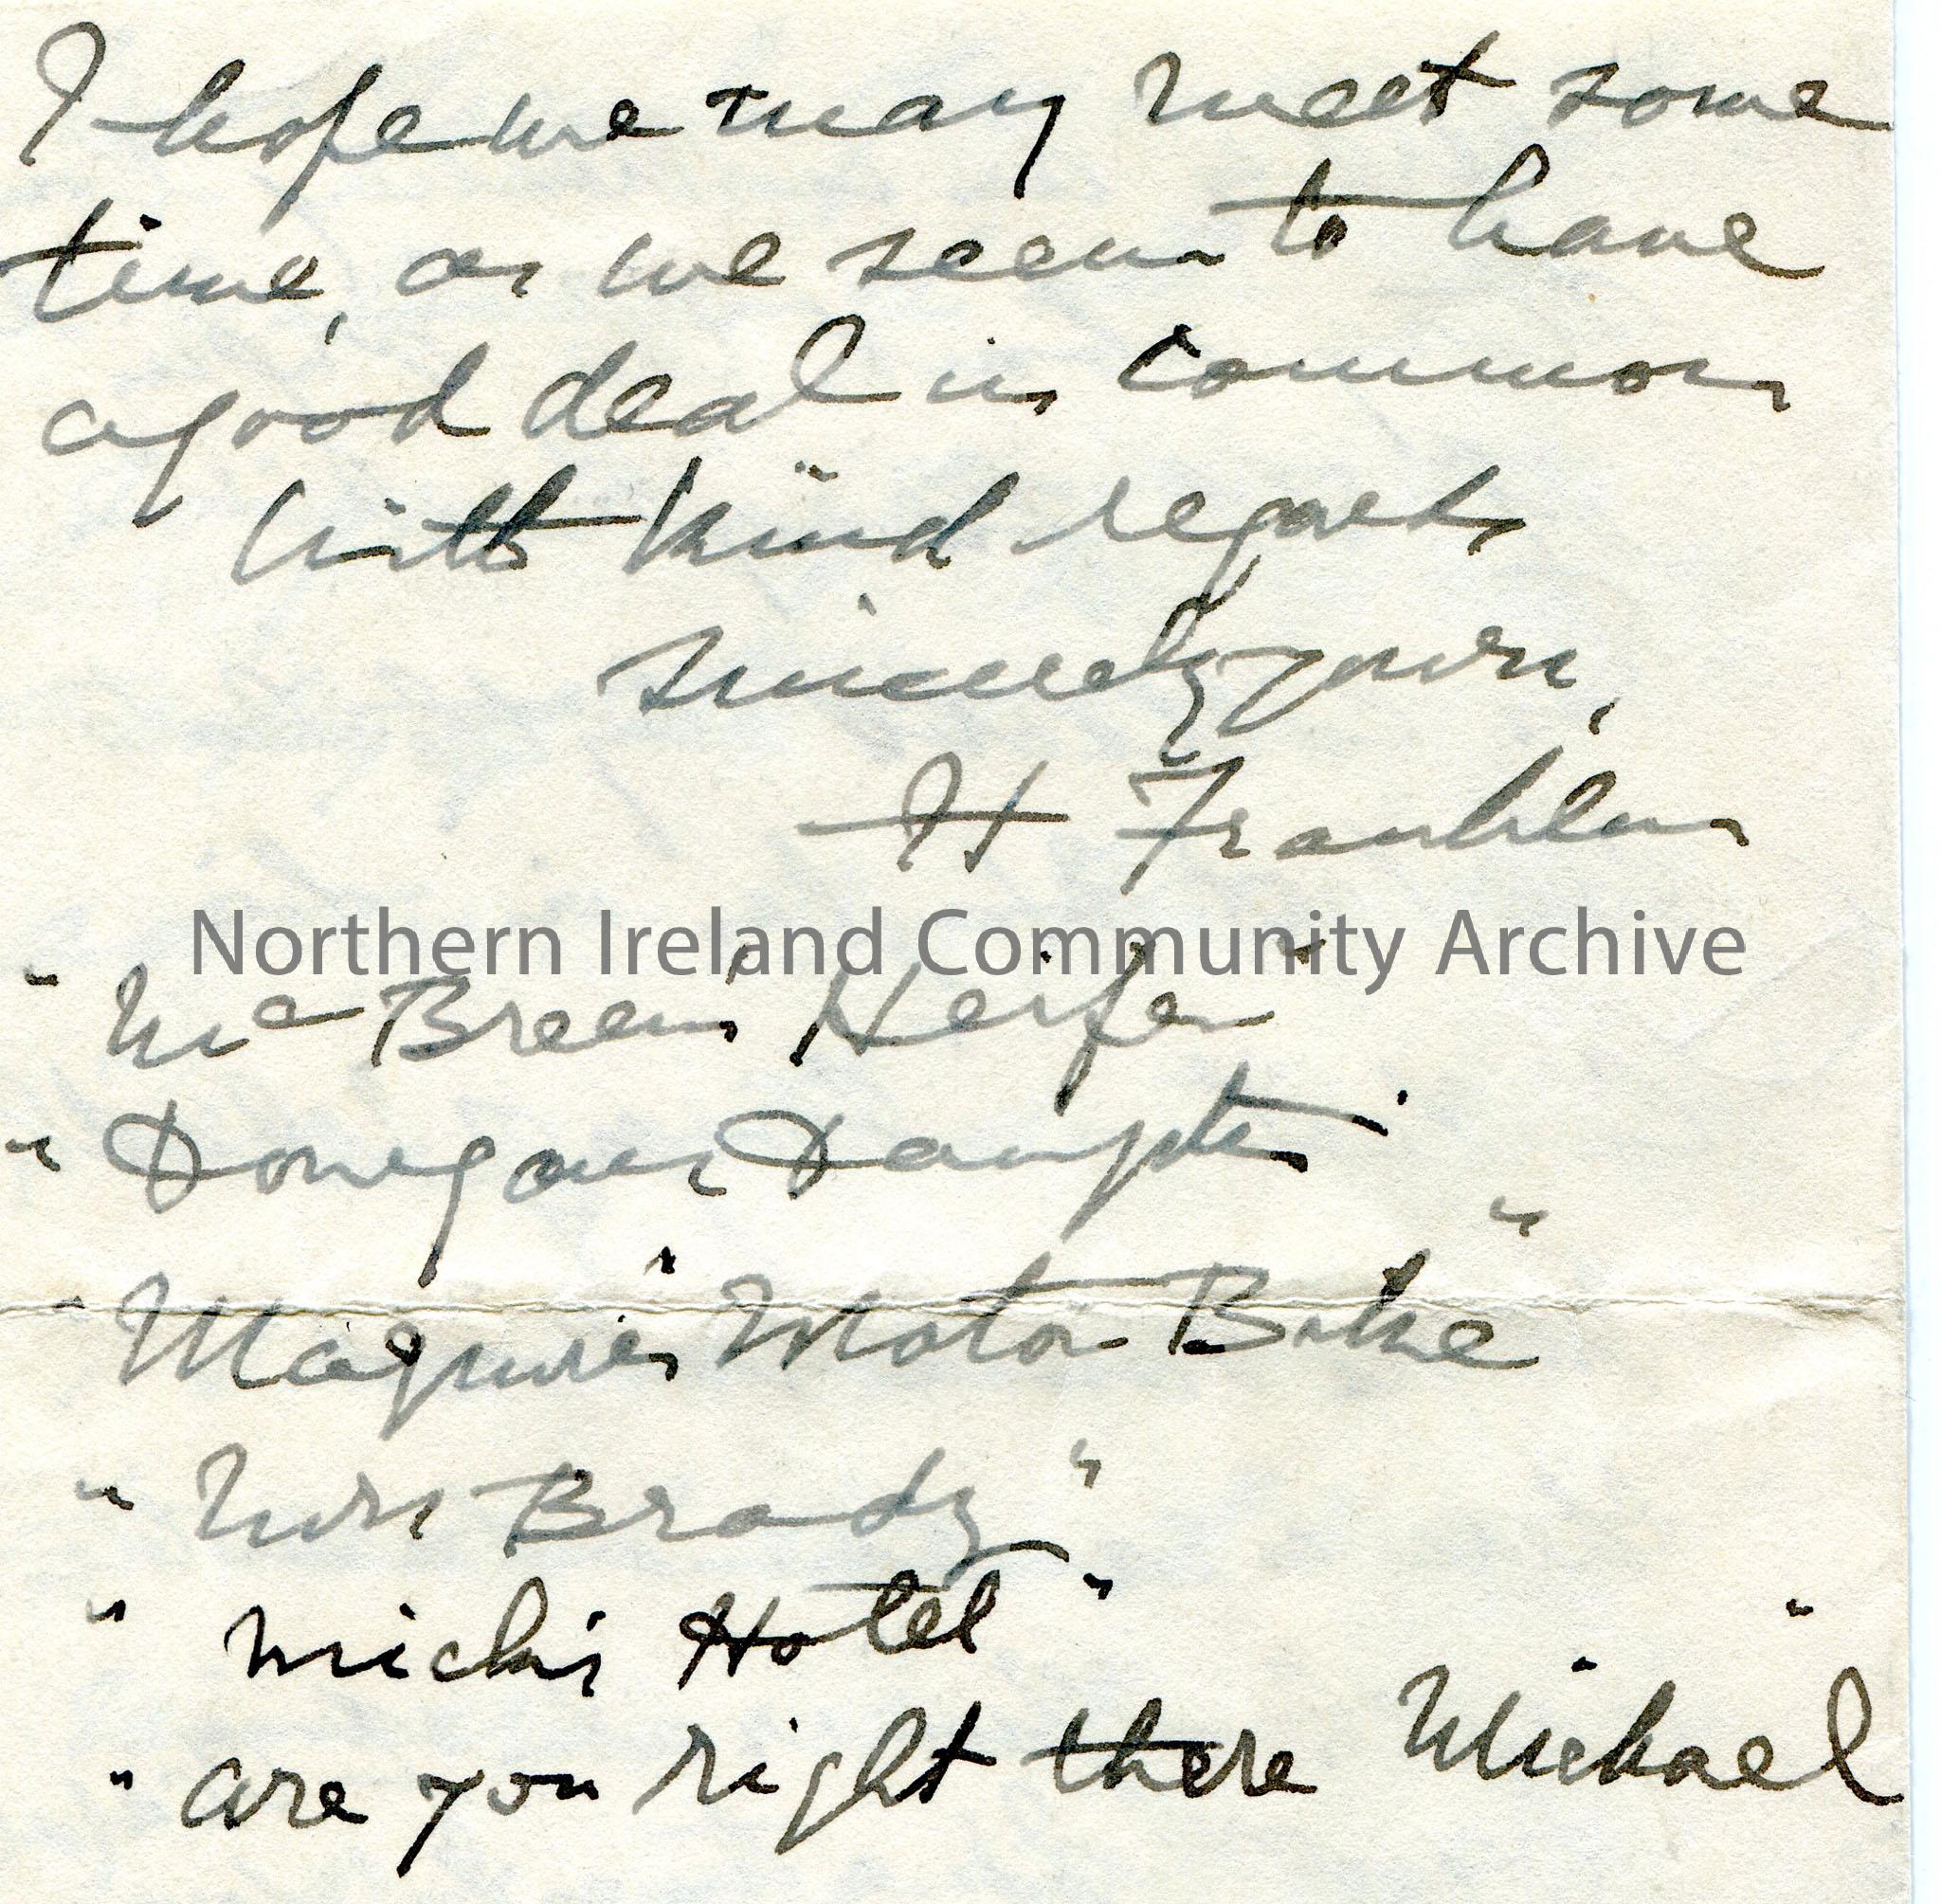 I hope we may meet some
time, as we seem to have
a good deal in common
With kind regards
sincerely yours,
H Franklin
Northern Ireland Community Archive
"McBreen's Heifer"
"Donegan's Daughter"
"Maguire's Motor Bike"
"Mrs Brady"
"Mick's Hotel"
"are you right there Michael"